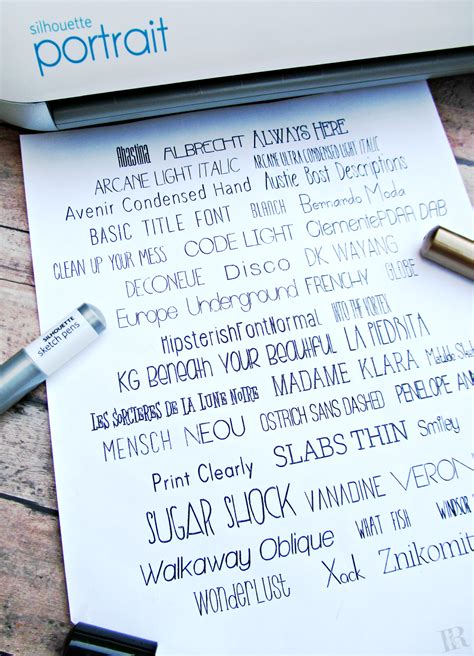 silhouette
portrait
Abastina ALBRECHT ALWAYS HERE
ARCANE LIGHT ITALIC ARCANE ULTRA CONDENSED LIGHT ITALIC
Avenir Condensed Hand Austie Bost Descriptions
BASIC TITLE FONT BLANCH Bernardo Moda
CLEAN UP YOUR MESS CODE LIGHT ClementePDAA DAB
DECONEUE Disco DK WAYANG
Europe Underground FRENCHY GLOBE
HipsterishFontNormal INTO THE VORTEX
KG BENEATH YOUR BEAUTIFUL LA PIEDRITA
LES SORCIERES DE LA LUNE NOIRE MADAME KLARA
MENSCH NEOU OSTRICH SANS DASHED PENELOPE AN
Print Clearly SLABS THIN Smiley
SUGAR SHOCK VANADINE VERON
Walkaway Oblique WHAT FISH WINDSOR
WONDERLUST Xack Znikomit
SILHOUETTE
sketch pens